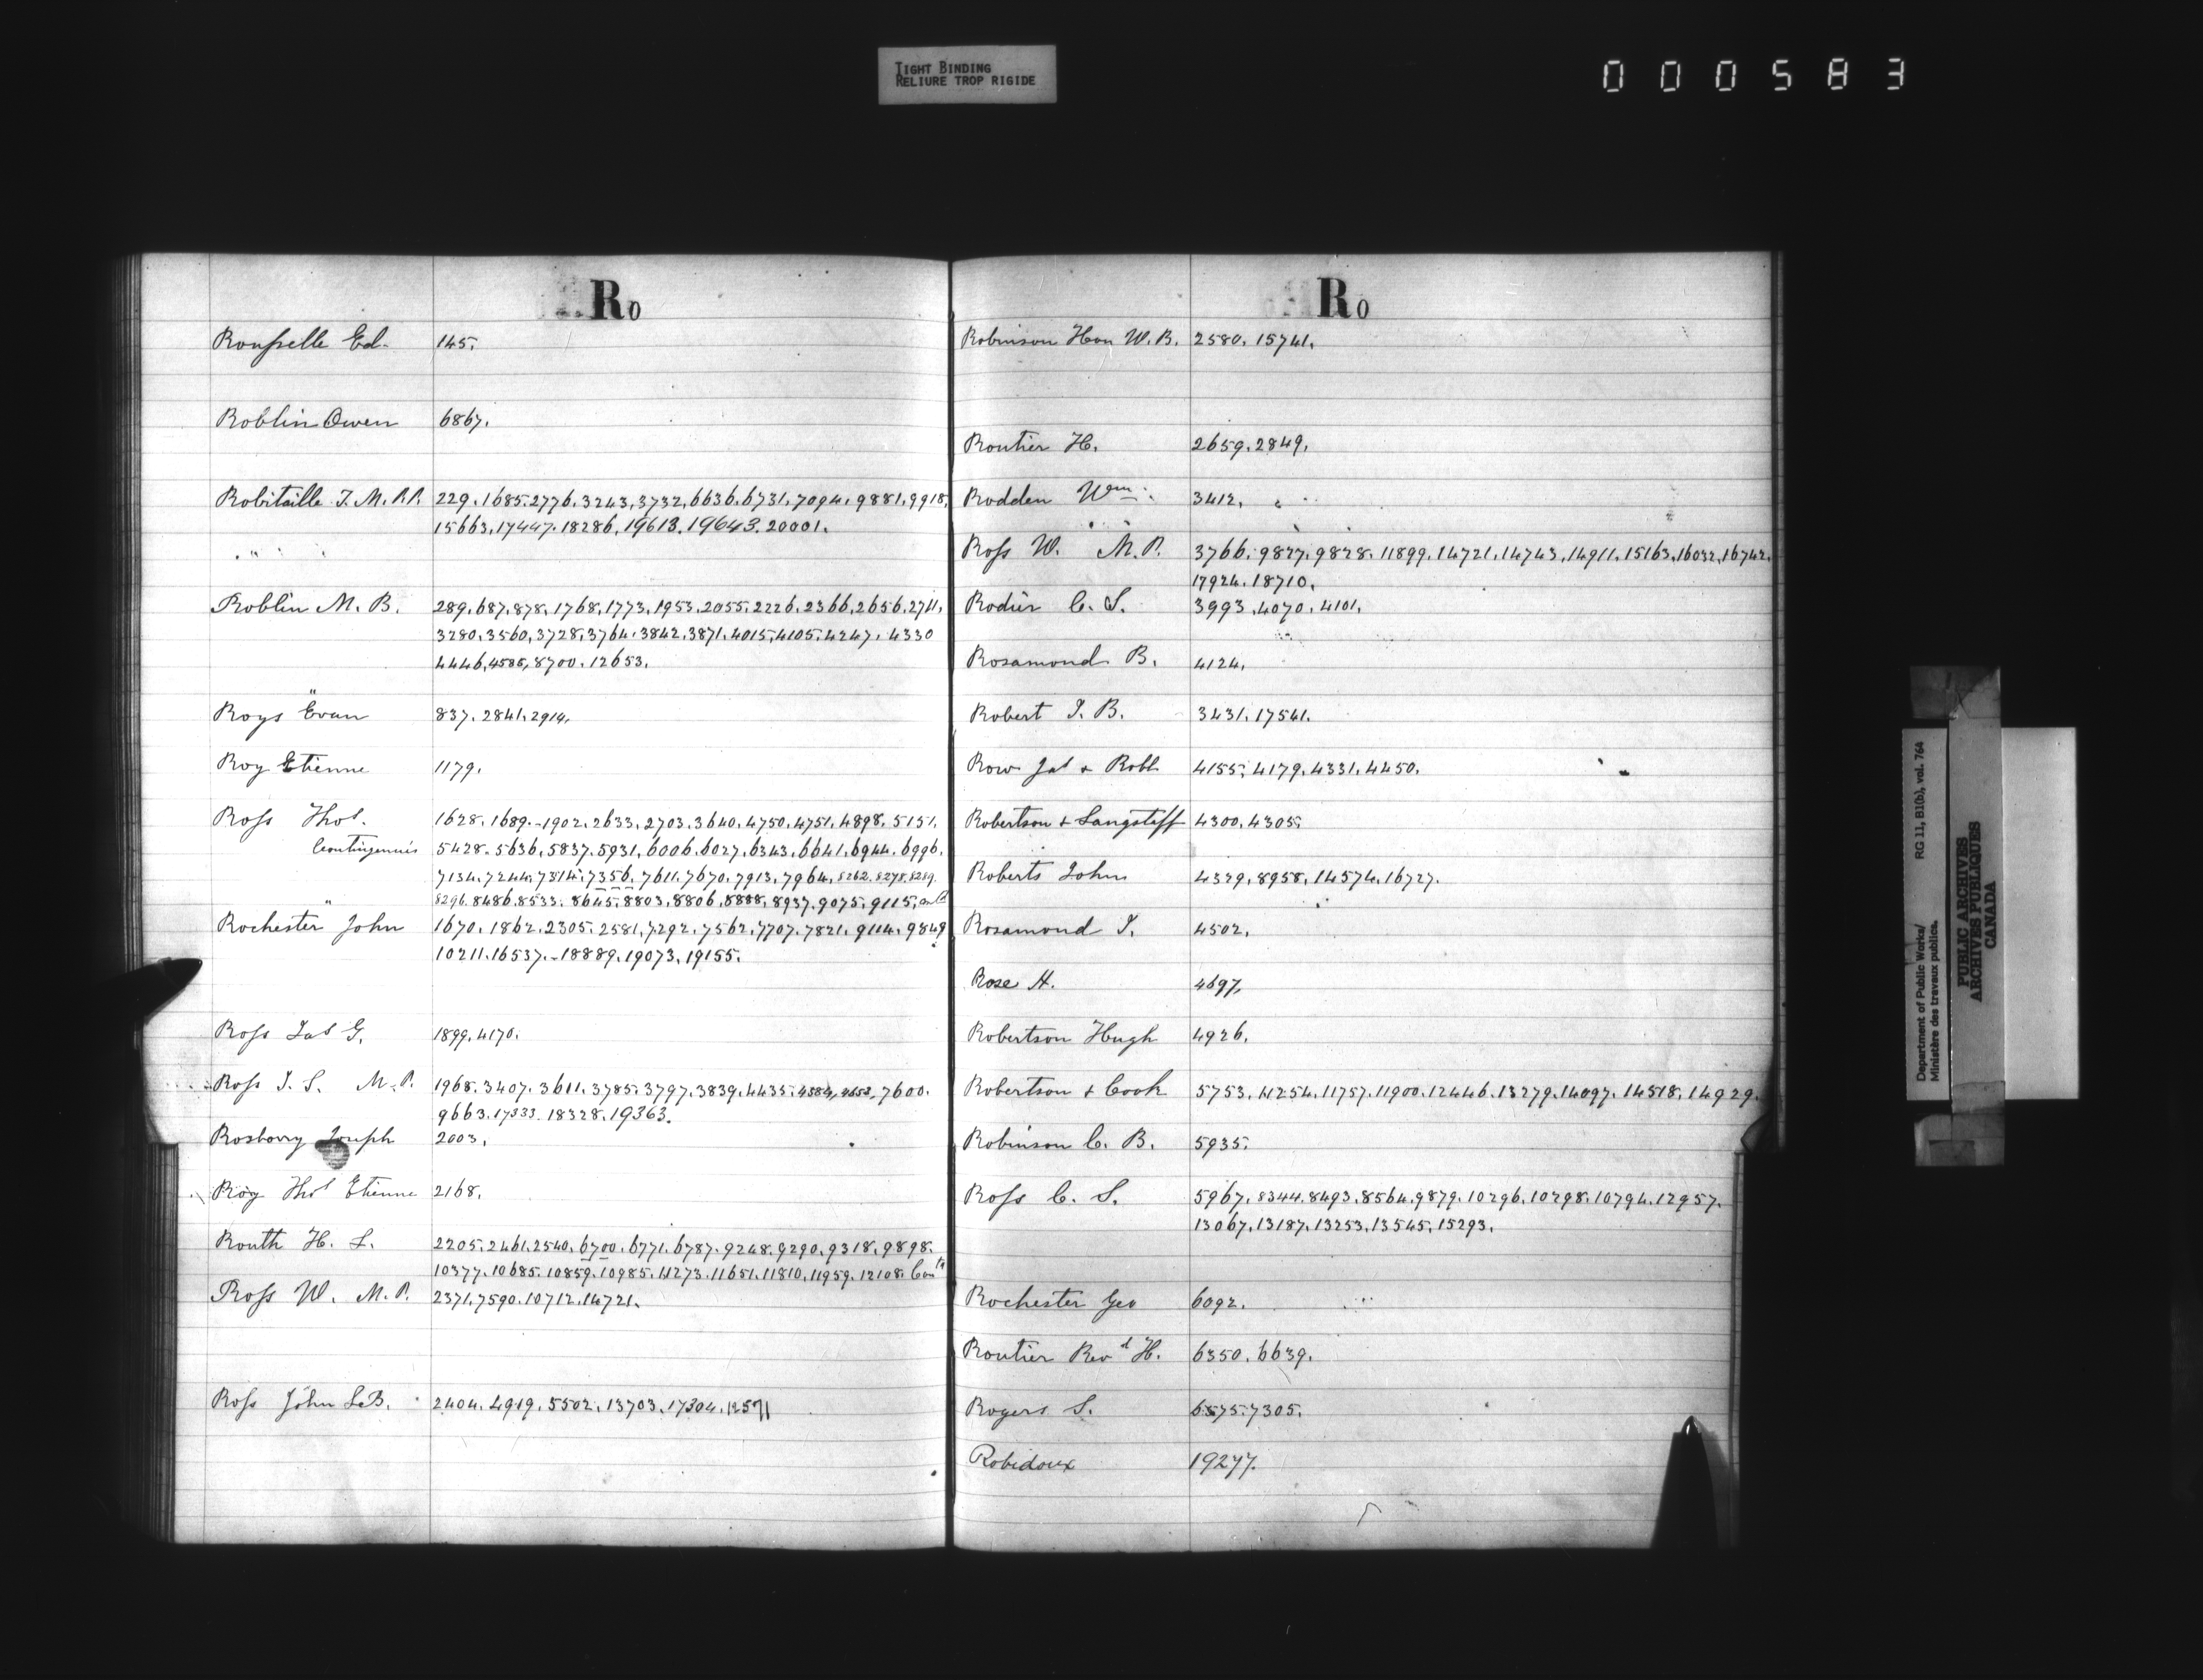 TIGHT BINDING
RELIURE TROP RIGIDE
000583
Ro
Rousselle Ed. 145.
Roblin Owen 6867.
Robitaille T. M.P.P. 229. 1685. 2776. 3243. 3732. 6636. 6731. 7094. 9881. 9918.
15663. 17447. 18286. 19613. 19643. 20001.
Roblin M. B. 289. 687. 878. 1768. 1773. 1953. 2055. 2226. 2366. 2656. 2711.
3280. 3560. 3728. 3764. 3842. 3871. 4015. 4105. 4247. 4330
4446. 4585. 8700. 12653.
Roys Evan 837. 2841. 2914.
Roy Etienne 1179.
Ross Thos. 1628. 1689. 1902. 2633. 2703. 3640. 4750. 4751. 4898. 5151.
Contingencies 5428. 5636. 5837. 5931. 6006. 6027. 6343. 6641. 6944. 6996.
7134. 7244. 7314. 7356. 7611. 7670. 7913. 7964. 8262. 8278. 8289.
8296. 8486. 8533. 8645. 8803. 8806. 8888. 8937. 9075. 9115.
Rochester John 1670. 1862. 2305. 2581. 7292. 7562. 7707. 7821. 9114. 9849
10211. 16537. 18889. 19073. 19155.
Ross Jas G. 1899. 4170.
Ross J. S. M.P. 1968. 3407. 3611. 3785. 3797. 3839. 4435. 4584. 4653. 7600.
9663. 17333. 18328. 19363.
Rosborry Joseph 2003.
Roy Thos Etienne 2168.
Routh H. L. 2205. 2461. 2540. 6700. 6771. 6787. 9248. 9290. 9318. 9898.
10377. 10685. 10859. 10985. 11273. 11651. 11810. 11959. 12108. Contd
Ross W. M.P. 2371. 7590. 10712. 14721.
Ross John LeB. 2404. 4919. 5502. 13703. 17304. 12571
Ro
Robinson Hon W. B. 2580. 15741.
Routier H. 2659. 2849.
Rodden Wm. 3412.
Ross W. M.P. 3766. 9827. 9828. 11899. 14721. 14743. 14911. 15163. 16032. 16742.
17924. 18710.
Rodier C. S. 3993. 4070. 4101.
Rosamond B. 4124.
Robert J. B. 3431. 17541.
Row Jas & Robt 4155. 4179. 4331. 4450.
Robertson & Langstaff 4300. 4305.
Roberts John 4329. 8958. 14574. 16727.
Rosamond J. 4502.
Rose H. 4697.
Robertson Hugh 4926.
Robertson & Cook 5753. 11254. 11757. 11900. 12446. 13279. 14097. 14518. 14929.
Robinson C. B. 5935.
Ross C. S. 5967. 8344. 8493. 8564. 9879. 10296. 10298. 10794. 12957.
13067. 13187. 13253. 13545. 15293.
Rochester Geo 6092.
Routier Revd H. 6350. 6639.
Rogers S. 6575. 7305.
Robidoux 19277.
Department of Public Works/ RG 11, B1(b), vol. 764
Ministère des travaux publics.
PUBLIC ARCHIVES
ARCHIVES PUBLIQUES
CANADA